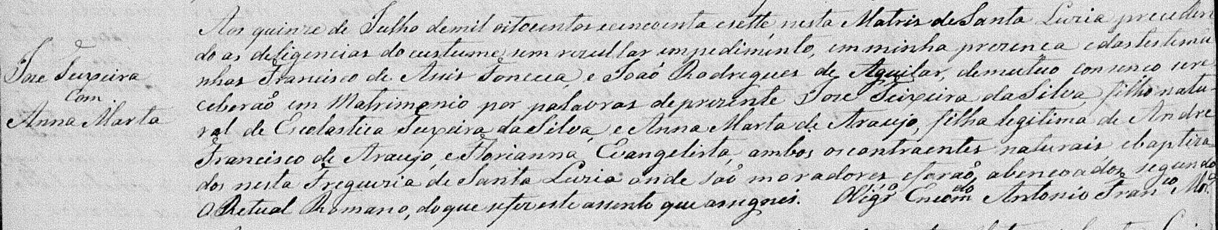 Aos quinze de Julho de mil oitocentos e cincoenta e sette nesta Matris de Santa Luzia preceden-
do as deligencias do custume, sem rezultar impedimento, em minha prezença e das testemu-
nhas Francisco de Assis Fonceca e Joaõ Rodrigues de Aguilar, de mutuo consenço se re-
ceberaõ em Matrimonio por palavras de prezente Jose Teixeira da Silva filho natu-
ral de Escolastica Teixeira da Silva, e Anna Marta de Araujo, filha legitima de Andre
Francisco de Araujo, e Florianna Evangelista ambos os contraentes naturais e baptiza
dos nesta Freguezia de Santa Luzia onde saõ moradores e foraõ abençoados segundo
O Retual Romano, do que se fez este assento que assignei. O Vigrº Encomdo Antonio Franco
Jose Teixeira
com
Anna Marta